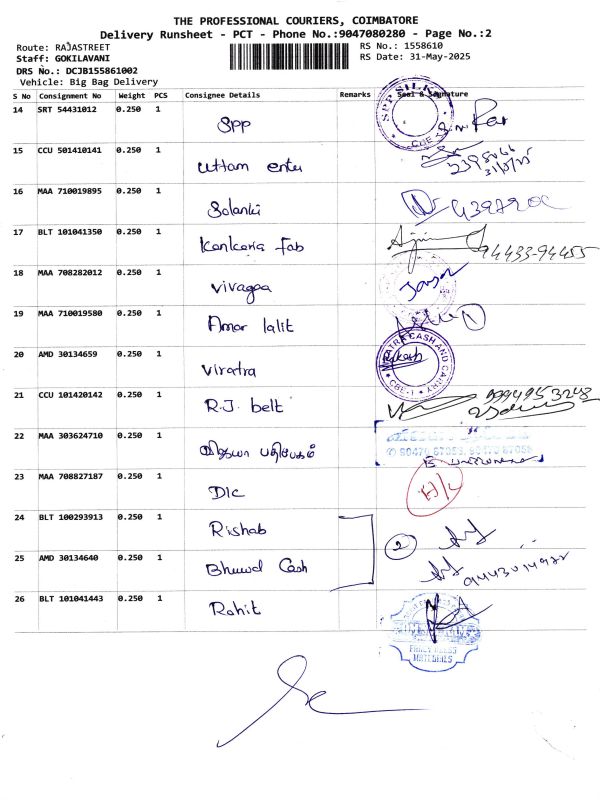 THE PROFESSIONAL COURIERS, COIMBATORE
Delivery Runsheet - PCT - Phone No.:9047080280 - Page No.:2
Route: RAJASTREET
Staff: GOKILAVANI
DRS No.: DCJB155861002
Vehicle: Big Bag Delivery
RS No.: 1558610
RS Date: 31-May-2025
S No Consignment No Weight PCS Consignee Details Remarks Seal & Signature
14 SRT 54431012 0.250 1 SPP
SPP SILK
CBE
15 CCU 501410141 0.250 1 Uttam enter
31/5/25
16 MAA 710019895 0.250 1 Solanki
17 BLT 101041350 0.250 1 Kankaria Fab
94433-94455
18 MAA 708282012 0.250 1 Vivagaa
19 MAA 710019580 0.250 1 Amar lalit
20 AMD 30134659 0.250 1 Viratra
CASH AND CARRY
CBE-1
21 CCU 101420142 0.250 1 R.J. belt
9994953248
22 MAA 303624710 0.250 1 விஜயா பதிப்பகம்
23 MAA 708827187 0.250 1 DIC
24 BLT 100293913 0.250 1 Rishab
2
25 AMD 30134640 0.250 1 Bhuwal Cash
26 BLT 101041443 0.250 1 Rohit
FANCY DRESS
MATERIALS